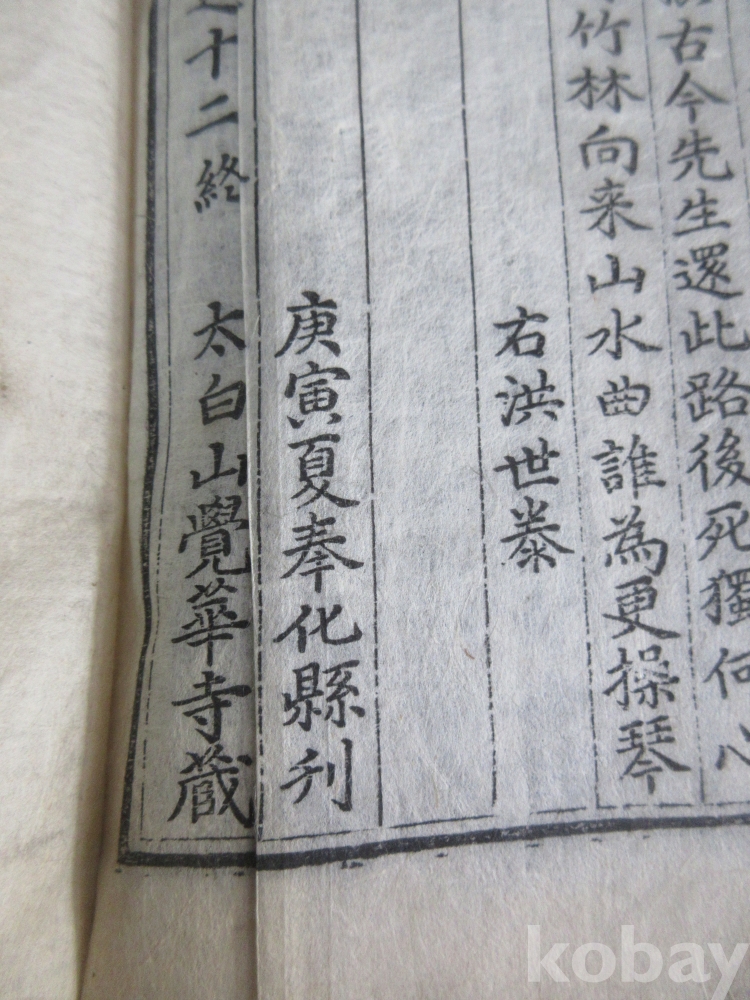 古今先生還此路後死獨何心
竹林向来山水曲誰為更操琴
右洪世泰
庚寅夏奉化縣刊
十二終 太白山覺華寺蔵
kobay